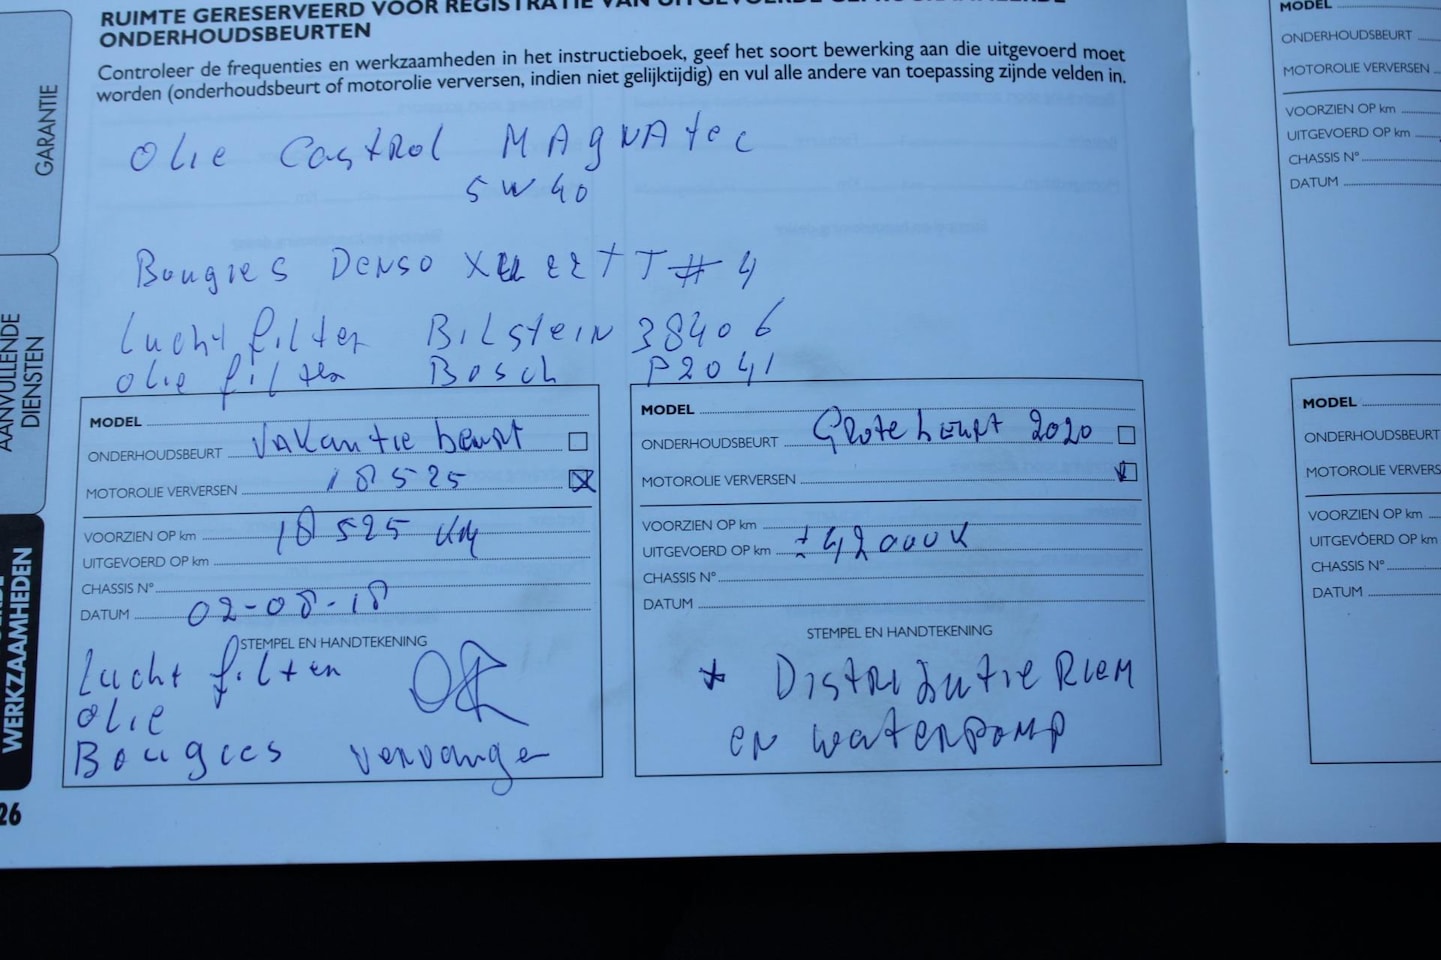 RUIMTE GERESERVEERD VOOR REGISTRATIE VAN UITGEVOERDE GEPROGRAMMEERDE
ONDERHOUDSBEURTEN
Controleer de frequenties en werkzaamheden in het instructieboek, geef het soort bewerking aan die uitgevoerd moet
worden (onderhoudsbeurt of motorolie verversen, indien niet gelijktijdig) en vul alle andere van toepassing zijnde velden in.
GARANTIE
AANVULLENDE
DIENSTEN
WERKZAAMHEDEN
26
Olie Castrol MAgNAtec
5W40
Bougies Denso T T # 4
Lucht filter Bilstein 38406
Olie filter Bosch P2041
MODEL
ONDERHOUDSBEURT vakantie beurt
MOTOROLIE VERVERSEN 18525
VOORZIEN OP km 18525 KM
UITGEVOERD OP km
CHASSIS N°
DATUM 02-08-18
STEMPEL EN HANDTEKENING
Lucht filter
Olie
Bougies vervangen
MODEL
ONDERHOUDSBEURT Grote beurt 2020
MOTOROLIE VERVERSEN
VOORZIEN OP km
UITGEVOERD OP km ±42000K
CHASSIS N°
DATUM
STEMPEL EN HANDTEKENING
* Distributie Riem
en waterpomp
MODEL
ONDERHOUDSBEURT
MOTOROLIE VERVERSEN
VOORZIEN OP km
UITGEVOERD OP km
CHASSIS N°
DATUM
MODEL
ONDERHOUDSBEURT
MOTOROLIE VERVERS
VOORZIEN OP km
UITGEVOERD OP km
CHASSIS N°
DATUM